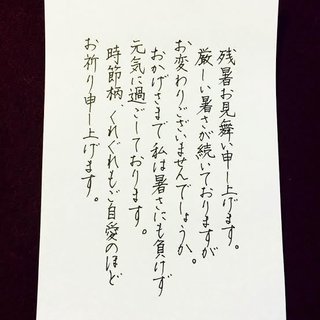 残暑お見舞い申し上げます。
厳しい暑さが続いておりますが
お変わりございませんでしょうか。
おかげさまで私は暑さにも負けず
元気に過ごしております。
時節柄、くれぐれもご自愛のほど
お祈り申し上げます。